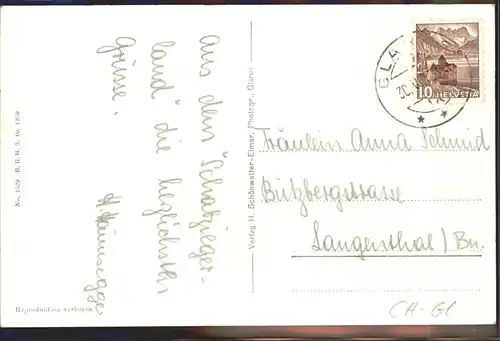 Aus dem "Schatziger-
land" die herzlichsten
Grüsse.
No. 1529 B. R. B. 3. 10. 1939
Reproduktion verboten
Verlag H. Schönwetter-Elmer, Photogr., Glarus
GLA
10 HELVETIA
Fräulein Anna Schmid
Bützbergstrasse
Langenthal / Bn.
CH-Gl